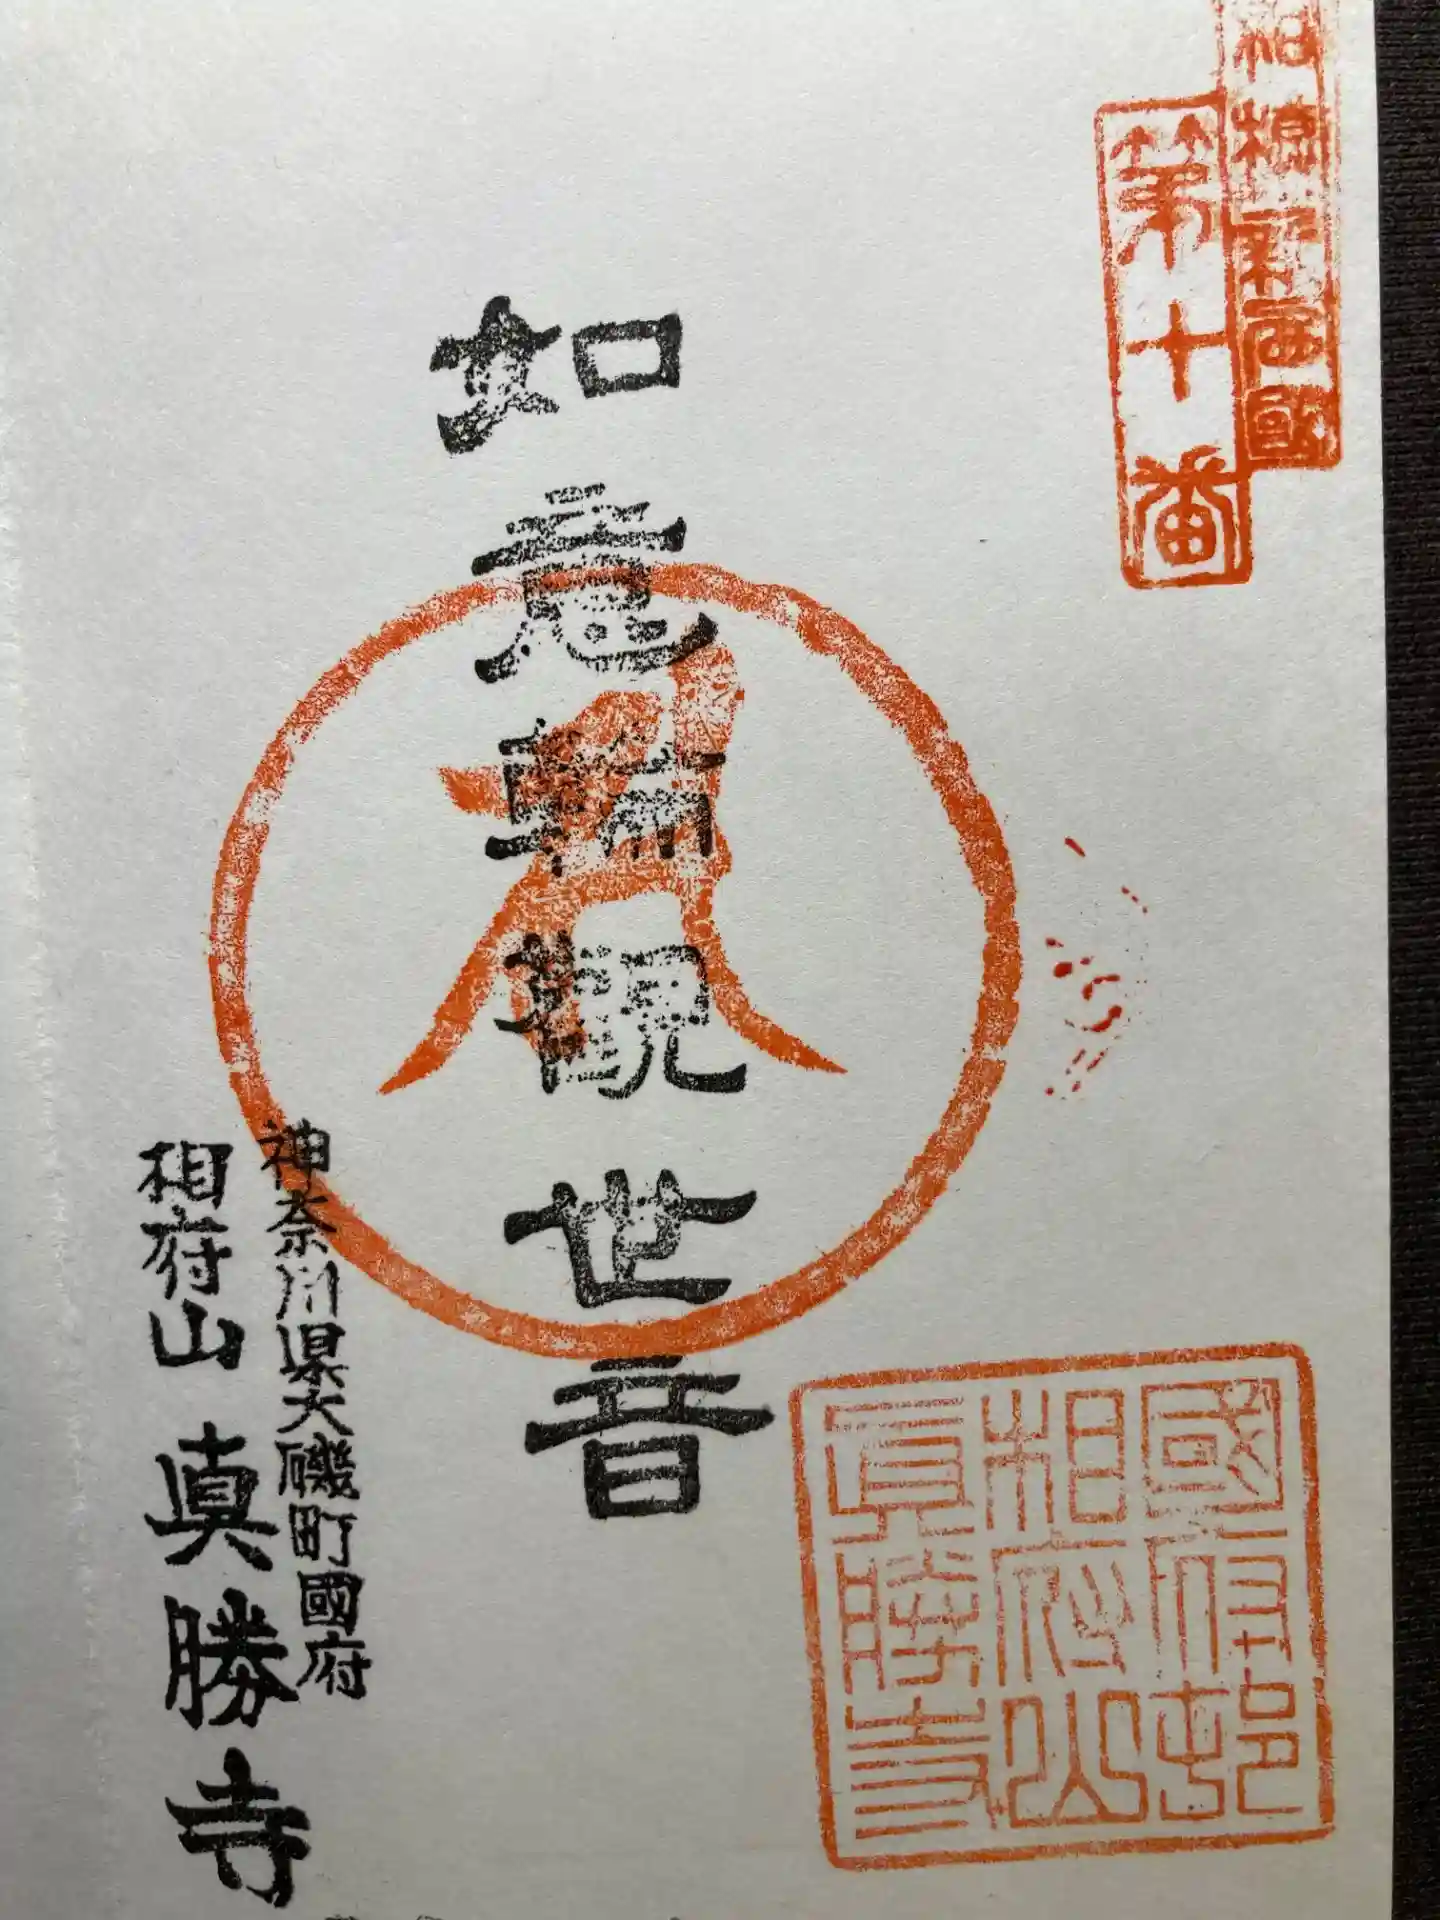 相模新西國
第十番
如意輪觀世音
國府邨
相府山
眞勝寺
神奈川県大磯町國府
相府山 眞勝寺